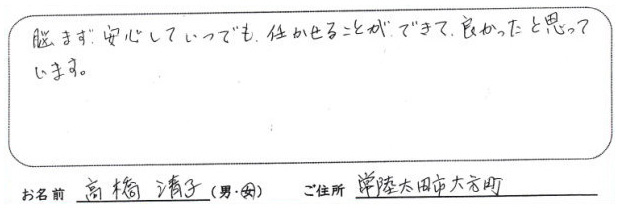 脳まず、安心していつでも、任かせることが、できて、良かったと思って
います。
お名前 高橋 清子 (男・女) ご住所 常陸太田市大方町